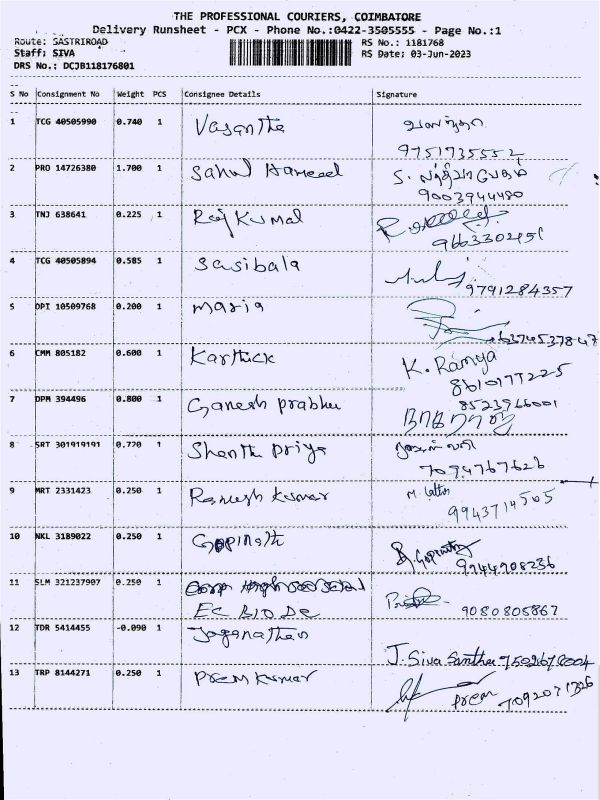 THE PROFESSIONAL COURIERS, COIMBATORE
Delivery Runsheet - PCX - Phone No.:0422-3505555 - Page No.:1
Route: SASTRIROAD RS No.: 1181768
Staff: SIVA RS Date: 03-Jun-2023
DRS No.: DCJB118176801
S No Consignment No Weight PCS Consignee Details Signature
1 TCG 40505990 0.740 1 Vasantha வசந்தா
9751735552
2 PRO 14726380 1.700 1 Sahul Hameed S.
9003944480
3 TNJ 638641 0.225 1 Raj Kumar
9663302151
4 TCG 40505894 0.585 1 Sasibala
9791284357
5 OPI 10509768 0.200 1 Maria
6374537847
6 CMM 805182 0.600 1 Karthick K. Ramya
8610177225
7 DPM 394496 0.800 1 Ganesh prabhu 8523966001
நாகராஜ்
8 SRT 301919191 0.720 1 Shanthi priya
7094767626
9 MRT 2331423 0.250 1 Ramesh Kumar
9943714505
10 NKL 3189022 0.250 1 Gopinath Gopinath
9944908236
11 SLM 321237907 0.250 1
EC BIO De 9080805867
12 TDR 5414455 -0.090 1 Jaganathan
J. Siva Santha 7502678004
13 TRP 8144271 0.250 1 Prem Kumar
Prem 7092071326